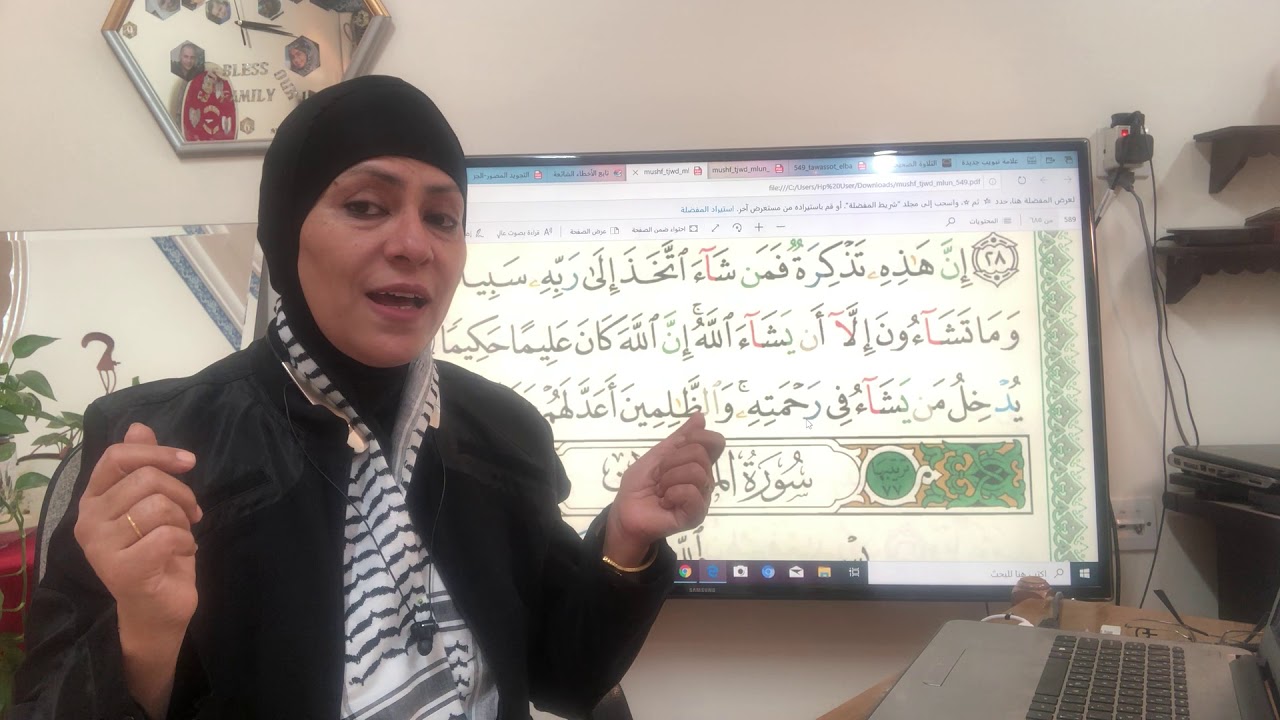 BLESS
OUR
FAMILY
علامة تبويب جديدة
التلاوة الصحيحة
549_tawassot_elba
mushf_tjwd_mlun_
mushf_tjwd_ml
تابع الأخطاء الشائعة
التجويد المصور-الجز
file:///C:/Users/Hp%20User/Downloads/mushf_tjwd_mlun_549.pdf
لعرض المفضلة هنا، حدد ثم، واسحب إلى مجلد "شريط المفضلة". أو قم باستيراده من مستعرض آخر. استيراد المفضلة
589 من ٦٨٨ المحتويات
احتواء ضمن الصفحة
عرض الصفحة
قراءة بصوت عالٍ
٢٨ إِنَّ هَٰذِهِۦ تَذْكِرَةٌ فَمَن شَآءَ ٱتَّخَذَ إِلَىٰ رَبِّهِۦ سَبِيلًا
وَمَا تَشَآءُونَ إِلَّآ أَن يَشَآءَ ٱللَّهُ ۚ إِنَّ ٱللَّهَ كَانَ عَلِيمًا حَكِيمًا
يُدْخِلُ مَن يَشَآءُ فِى رَحْمَتِهِۦ ۚ وَٱلظَّٰلِمِينَ أَعَدَّ لَهُمْ
ترتيبها ٧٧
سُورَةُ
اكتب هنا للبحث
SAMSUNG